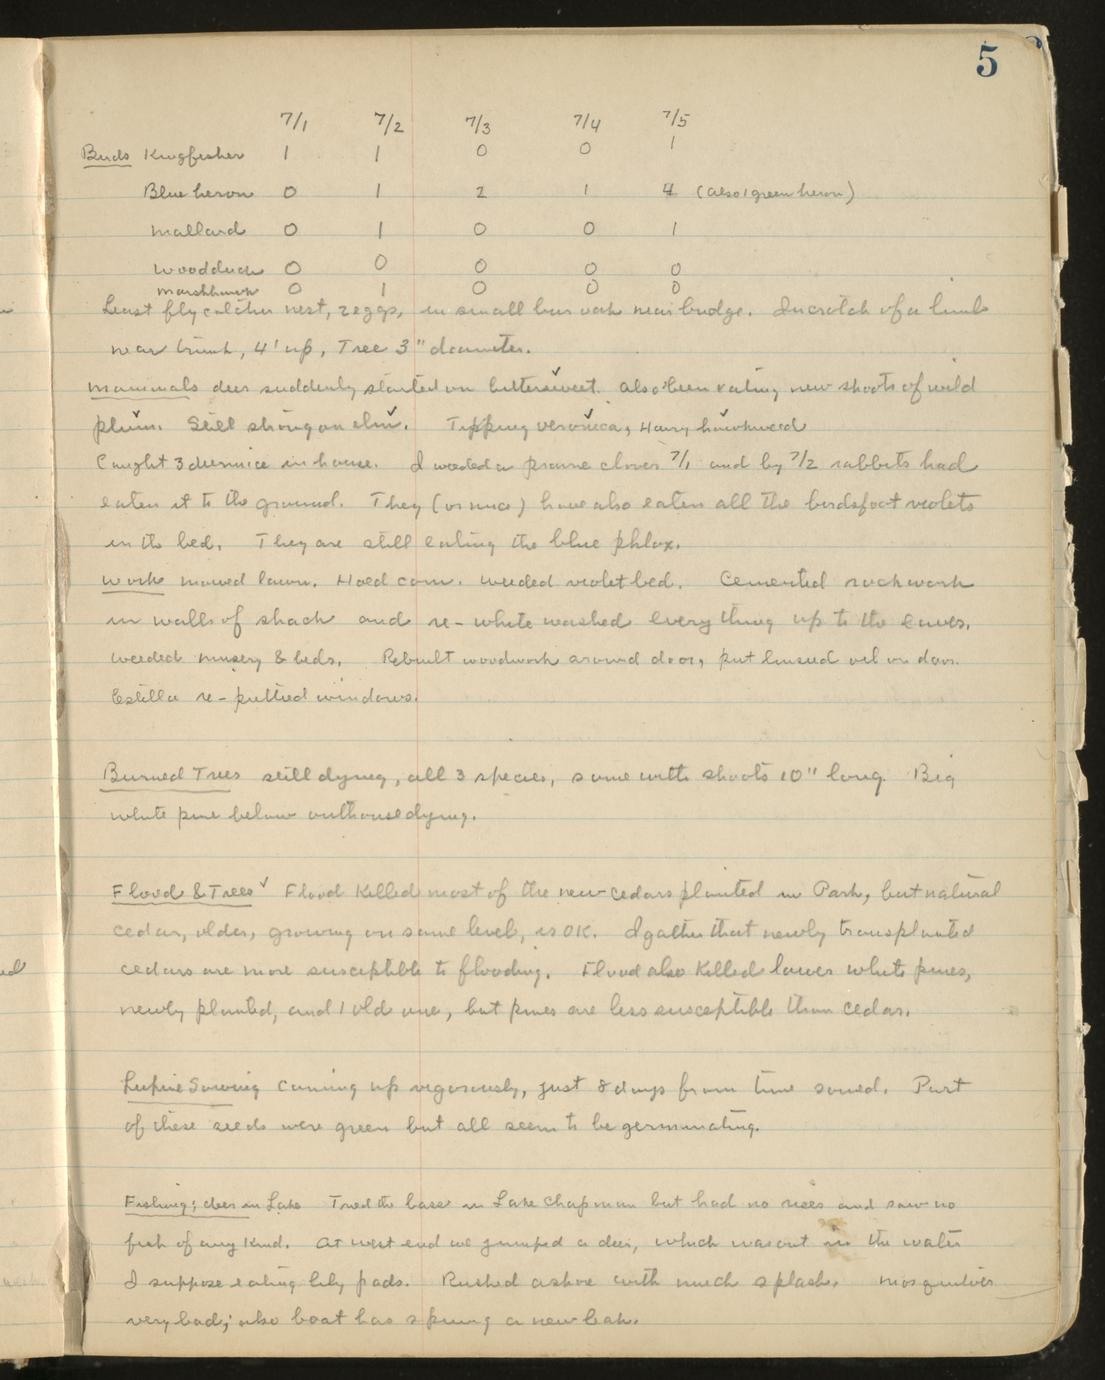 5
7/1 7/2 7/3 7/4 7/5
Birds Kingfisher 1 1 0 0 1
Blue heron 0 1 2 1 4 (also 1 green heron)
Mallard 0 1 0 0 1
Woodduck 0 0 0 0 0
Marshhawk 0 1 0 0 0
Least flycatcher nest, 2 eggs, in small bur oak near bridge. In crotch of a limb
near trunk, 4' up, Tree 3" diameter.
Mammals deer suddenly started on bittersweet. Also been eating new shoots of wild
plum. Still strong on elm. Tipping veronica, Hairy hawkweed
Caught 3 deermice in house. I weeded a prairie clover 7/1 and by 7/2 rabbits had
eaten it to the ground. They (or mice) have also eaten all the birdsfoot violets
in the bed. They are still eating the blue phlox.
Work mowed lawn. Hoed corn. Weeded violet bed. Cemented rockwork
in walls of shack and re-white washed everything up to the eaves.
Weeded nursery & beds. Rebuilt woodwork around door, put linseed oil on door.
Estella re-puttied windows.
Burned Trees still dying, all 3 species, some with shoots 10" long. Big
white pine below outhouse dying.
Flood & Trees Flood killed most of the new cedars planted in Park, but natural
cedar, older, growing on same level, is OK. I gather that newly transplanted
cedars are more susceptible to flooding. Flood also killed lower white pines,
newly planted, and 1 old one, but pines are less susceptible than cedar.
Lupine Sowing coming up vigorously, just 8 days from time sowed. Part
of these seeds were green but all seem to be germinating.
Fishing; deer in Lake Tried the bass in Lake Chapman but had no rises and saw no
fish of any kind. At west end we jumped a deer, which was out in the water
I suppose eating lily pads. Rushed ashore with much splash. Mosquitoes
very bad; also boat has sprung a new leak.